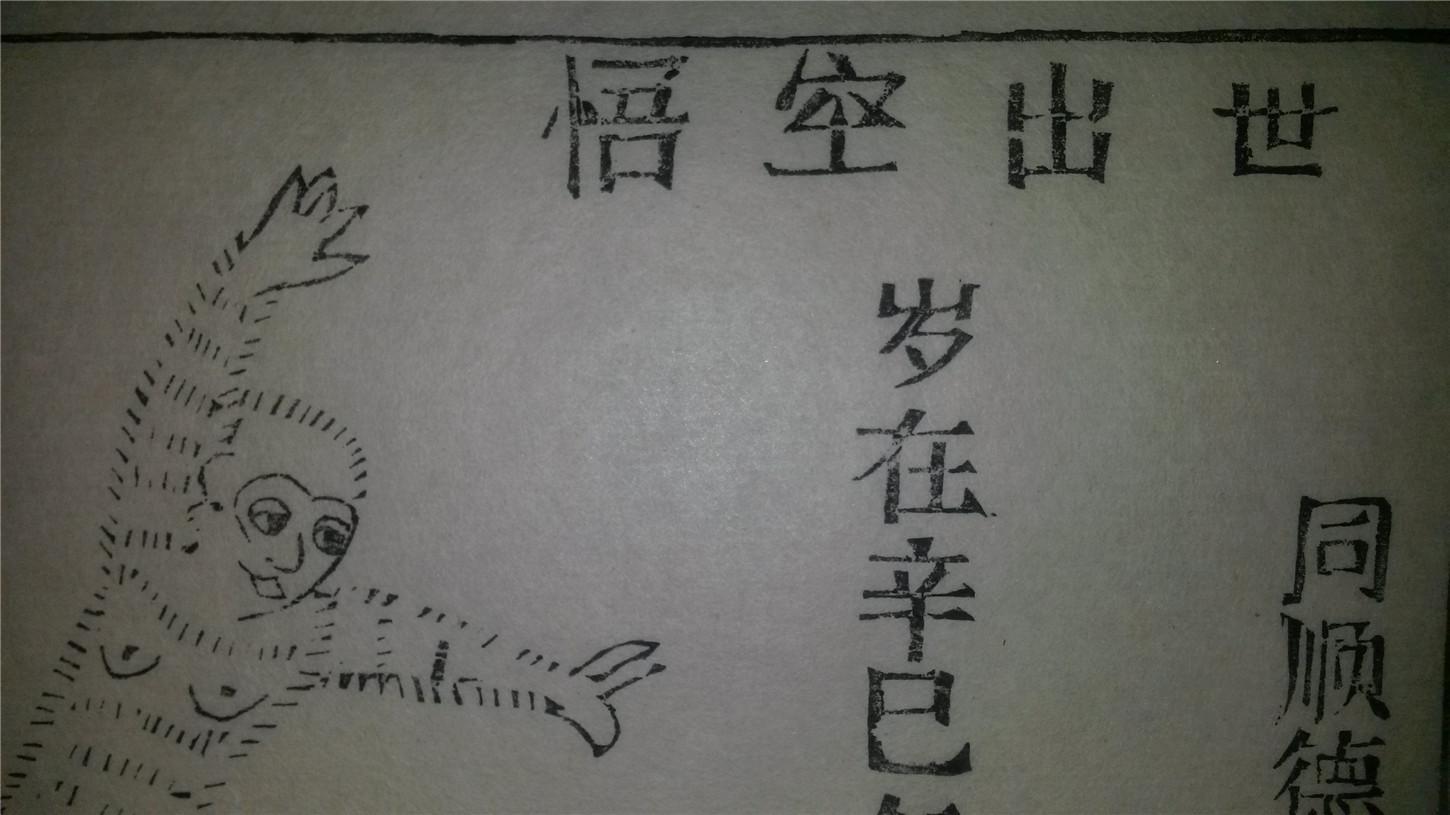 悟空出世
岁在辛巳
同顺德